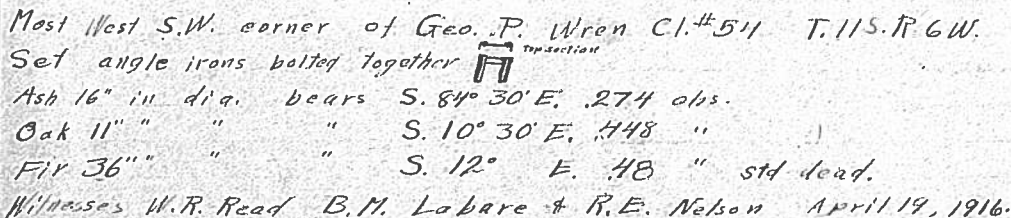 Most West S.W. corner of Geo. P. Wren Cl.#54 T.11S.R6W.
Set angle irons bolted together Top section
Ash 16" in dia. bears S. 84° 30' E. .274 chs.
Oak 11" " " " S. 10° 30' E. .448 "
Fir 36" " " " S. 12° E. .48 " std dead.
Witnesses W.R. Read B.M. Labare & R.E. Nelson April 19, 1916.